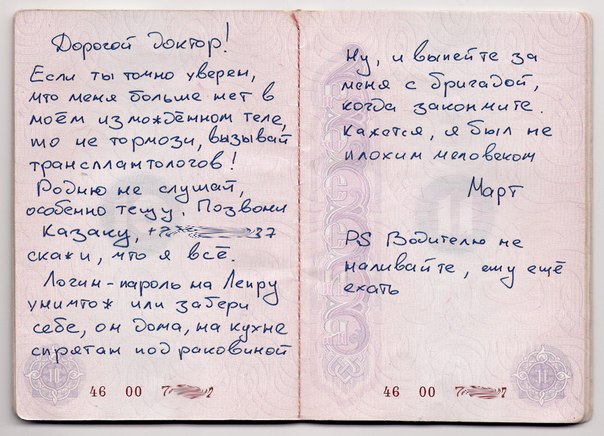 Дорогой доктор!
Если ты точно уверен,
что меня больше нет в
моём измождённом теле,
то не тормози, вызывай
трансплантологов!
Родню не слушай,
особенно тещу. Позвони
Казаку, +7 37
скажи, что я всё.
Логин-пароль на Лепру
уничтож или забери
себе, он дома, на кухне
спрятан под раковиной
46 00 7
Ну, и выпейте за
меня с бригадой,
когда закончите.
Кажется, я был не
плохим человеком
Март
PS Водителю не
наливайте, ему ещё
ехать
46 00 7
11
11